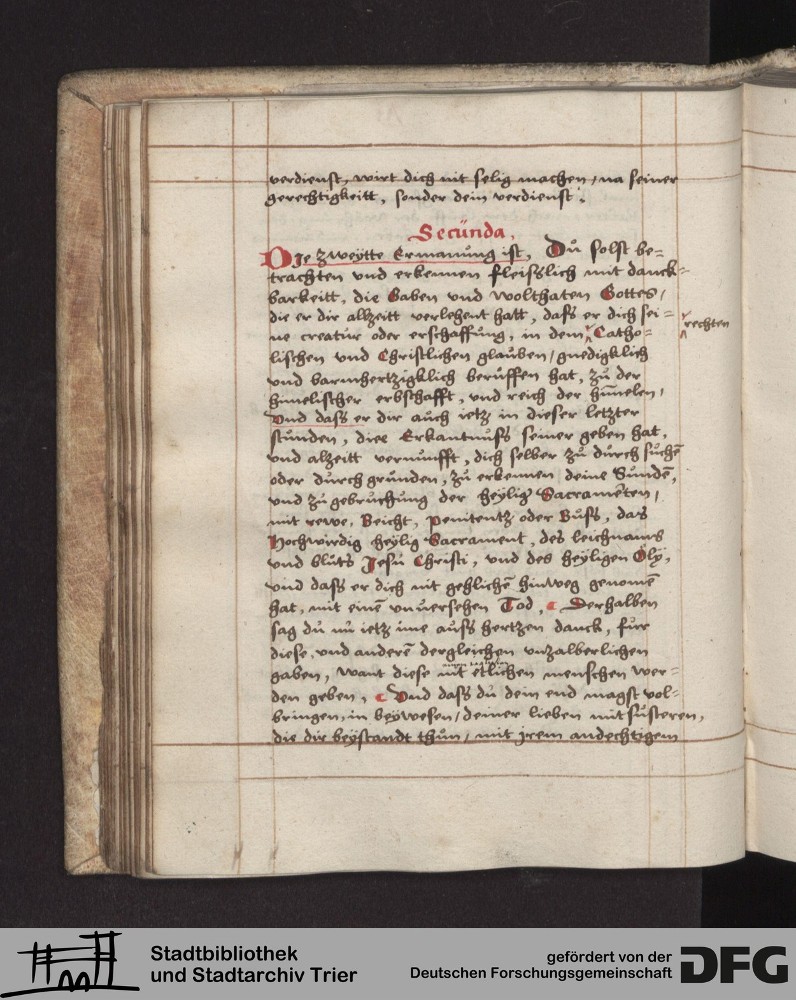 verdienst, wirt dich nit selig machen / na seiner
gerechtigkeitt, sonder dein verdienst.
Secünda.
Die zweÿtte Ermanüng ist, Dü solst be=
trachten vnd erkennen fleißlich mit danck=
barkeitt, die Gaben vnd wolthaten Gottes /
die er dir allzeitt verlehent hatt, dass er dich sei=
ne creatür oder erschaffüng, in dem Catho=
rechten
lischen vnd Christlichen glaüben / gnedigklich
vnd barmhertzigklich berüffen hat, zü der
himelischer erbschafft, vnd reich der himelen /
Vnd dass er dir aüch ietz in dieser letzter
stünden, diee Erkantnüss seiner geben hat,
vnd alzeitt vernünfft, dich selber zü dürch süchē
oder dürch gründen, zü erkennen deine Sündē,
vnd zü gebrüchüng der heÿligē Sacramēten /
mit rewe, Beicht, penitentz oder Büss, das
Hochwirdig heÿlig Sacrament, des leichnams
vnd blüts Jesü Christi, vnd des heÿligen Olÿ,
vnd dass er dich nit gehlichē hinweg genomē
hat, mit einē vnuersehen Tod, Derhalben
sag dü nü ietz ime aüss hertzen danck, für
diese vnd anderē dergleichen vnzalberlichen
gaben, want diese nit etlichen menschen wer=
den geben, Vnd dass dü dem end magst vol=
bringen, in beÿwesen / deiner lieben mitsüsteren,
die dir beÿstandt thün / mit jrem andechtigem
Stadtbibliothek
und Stadtarchiv Trier
gefördert von der
Deutschen Forschungsgemeinschaft
DFG